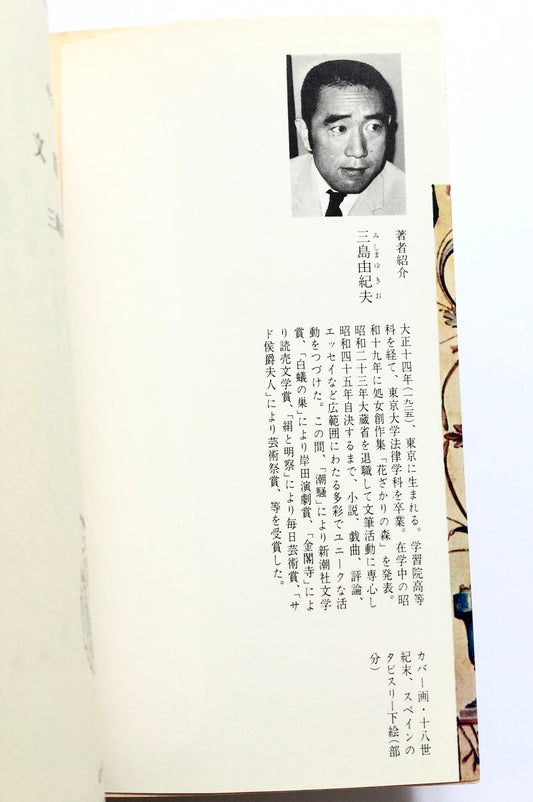 著者紹介
みしまゆきお
三島由紀夫
大正十四年(一九二五)、東京に生まれる。学習院高等
科を経て、東京大学法律学科を卒業。在学中の昭
和十九年に処女創作集「花ざかりの森」を発表。
昭和二十三年大蔵省を退職して文筆活動に専心し
昭和四十五年自決するまで、小説、戯曲、評論、
エッセイなど広範囲にわたる多彩でユニークな活
動をつづけた。この間、「潮騒」により新潮社文学
賞、「白蟻の巣」により岸田演劇賞、「金閣寺」によ
り読売文学賞、「絹と明察」により毎日芸術賞、「サ
ド侯爵夫人」により芸術祭賞、等を受賞した。
カバー画・十八世
紀末、スペインの
タピスリー下絵(部
分)
文